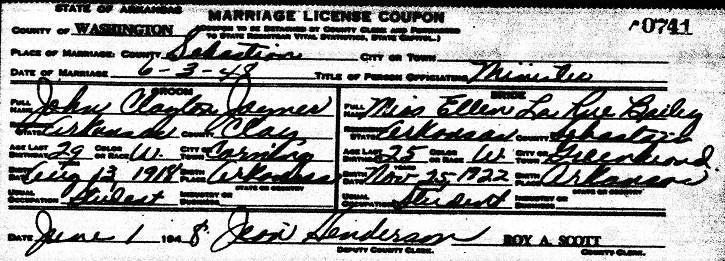 STATE OF ARKANSAS
MARRIAGE LICENSE COUPON
COUNTY OF WASHINGTON (COUPON TO BE DETACHED BY COUNTY CLERK AND FORWARDED TO STATE BUREAU VITAL STATISTICS, STATE CAPITOL.) 0741
PLACE OF MARRIAGE: COUNTY Sebastian CITY OR TOWN
DATE OF MARRIAGE 6-3-48 TITLE OF PERSON OFFICIATING Minister
GROOM BRIDE
FULL NAME John Clayton Joyner FULL NAME Miss Ellen La Rue Bailey
STATE Arkansas COUNTY Clay STATE Arkansas COUNTY Sebastian
AGE LAST BIRTHDAY 29 COLOR OR RACE W. CITY OR TOWN Corning AGE LAST BIRTHDAY 25 COLOR OR RACE W. CITY OR TOWN Greenwood
BIRTH DATE Aug 13, 1918 BIRTH PLACE Arkansas BIRTH DATE Nov 25, 1922 BIRTH PLACE Arkansas
STATE OR COUNTRY STATE OR COUNTRY
USUAL OCCUPATION Student INDUSTRY OR BUSINESS USUAL OCCUPATION Student INDUSTRY OR BUSINESS
DATE June 1 1948. Jean Henderson ROY A. SCOTT
DEPUTY COUNTY CLERK. COUNTY CLERK.